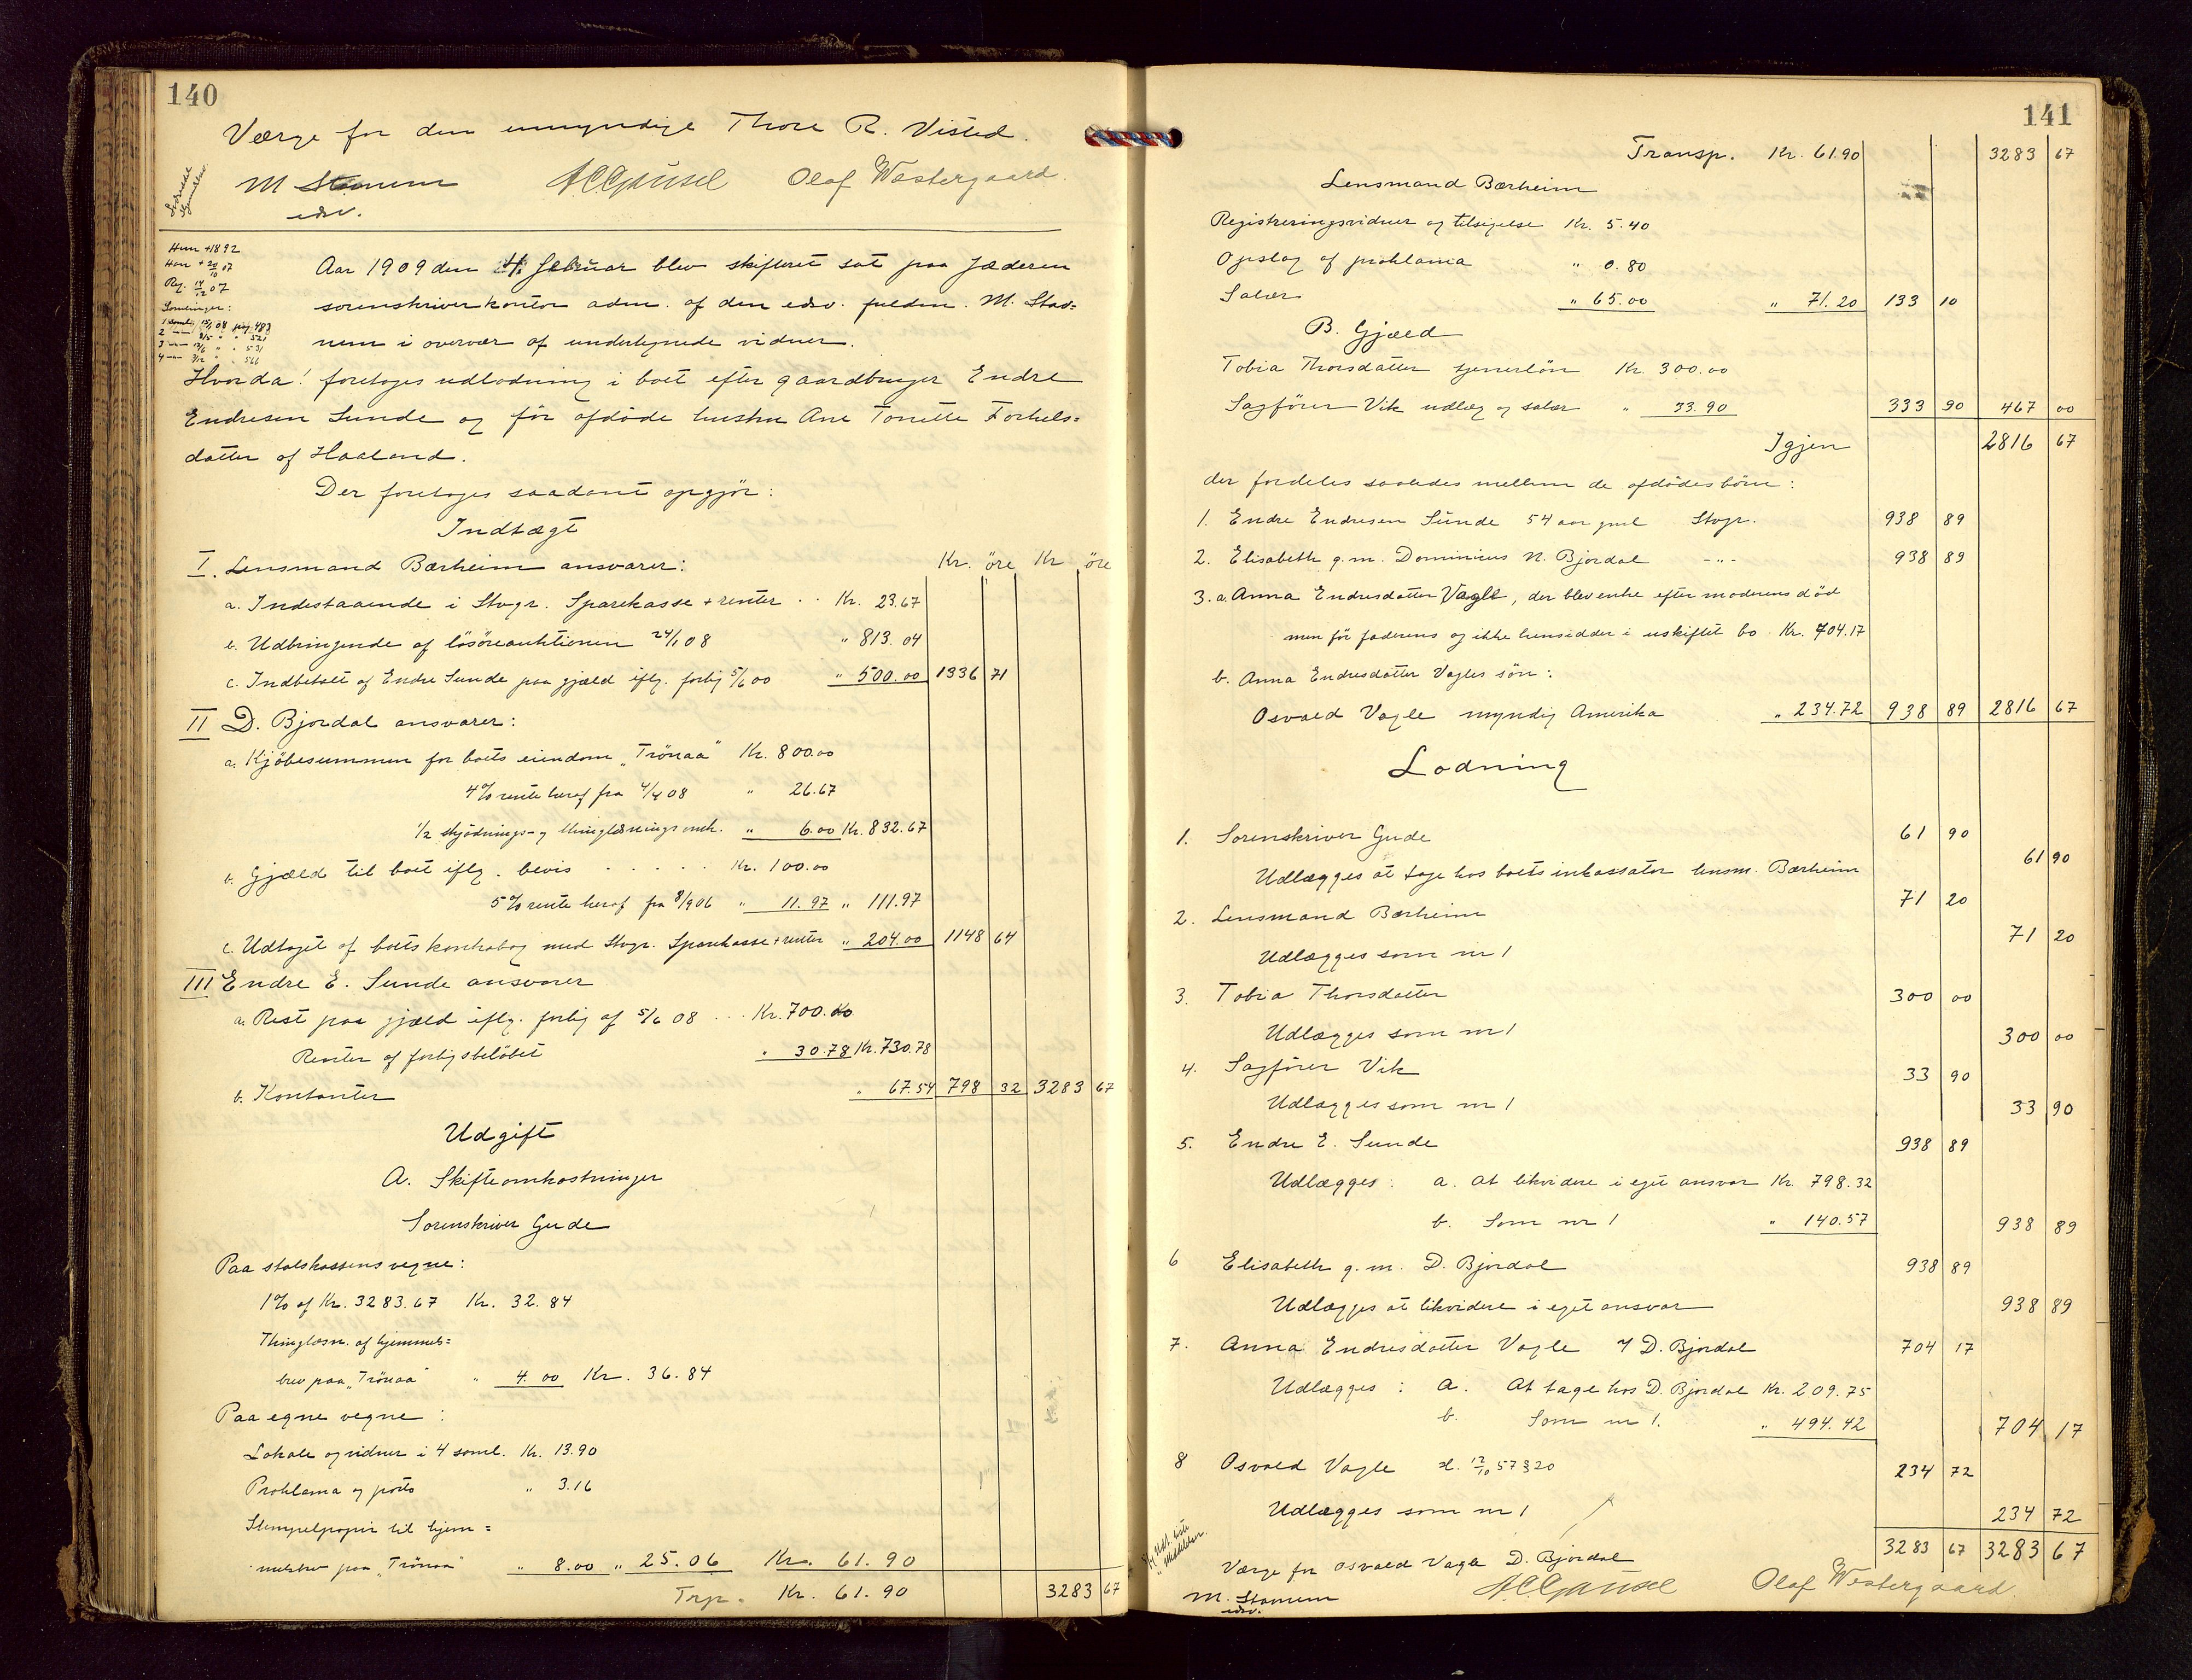 140
Værge for den umyndige Thore R. Visted.
M Stamnem A C Gausel Olaf Westergaard.
edsv.
Hun + 1892
Han + 20/10 07
Reg. 14/12 07
Samlinger:
Aar 1909 den 4. februar blev skifteret sat paa Jæderen
sorenskriverkontor adm. af den edsv. fuldm. M. Stav=
nem i overvær af undertegnede vidner.
Hvorda! foretoges udlodning i boet efter gaardbruger Endre
Endresen Sunde og før afdøde hustru Ane Tonette Torkels=
datter af Haaland.
Der foretoges saadant opgjør:
Indtægt
I. Lensmand Bærheim ansvarer: Kr. øre Kr øre
a. Indestaaende i Stvgr. Sparekasse + renter .. Kr. 23.67
b. Udbringende af løsøreauktionen 24/1 08 " 813.04
c. Indbetalt af Endre Sunde paa gjæld iflg. forlig 5/6 00 " 500.00 1336 71
II D. Bjordal ansvarer:
a. Kjøbesummen for boets eiendom „Trönaa" Kr. 800.00
4% rente heraf fra 4/4 08 " 26.67
1/2 skjødnings- og thinglæsnings omk. " 6.00 Kr. 832.67
b. Gjæld til boet iflg. bevis . . . . . Kr. 100.00
5% rente heraf fra 8/9 06 " 11.97 " 111.97
c. Udtaget af boets kontrabog med Stvgr. Sparekasse + renter " 204.00 1148 64
III Endre E. Sunde ansvarer
a. Rest paa gjæld iflg. forlig af 5/6 08 ... Kr. 700.00
Renter af forligsbeløbet " 30.78 Kr. 730.78
b. Kontanter " 67.54 798 32 3283 67
Udgift
A. Skifteomkostninger
Sorenskriver Gude
Paa statskassens vegne:
1% af Kr. 3283.67 Kr. 32.84
Thinglæsn. af hjemmels=
brev paa „Trönaa" " 4.00 Kr. 36.84
Paa egne vegne:
Lokale og vidner i 4 saml. Kr. 13.90
Proklama og porto " 3.16
Stempelpapir til hjem=
melsbrev paa „Trönaa" " 8.00 " 25.06 Kr. 61.90
Trp. Kr. 61.90 3283 67
141
Transp. Kr. 61.90 3283 67
Lensmand Bærheim
Registreringsvidner og tilsigelse Kr. 5.40
Opslag af proklama " 0.80
Salær " 65.00 " 71.20 133 10
B. Gjæld
Tobia Thorsdatter tjenerløn Kr. 300.00
Sagfører Vik udlæg og salær " 33.90 333 90 467 00
Igjen 2816 67
der fordeles saaledes mellem de afdødes børn:
1. Endre Endresen Sunde 54 aar gml Stvgr. 938 89
2. Elisabeth g. m. Dominicus N. Bjordal -"- 938 89
3. a. Anna Endresdatter Vagle, der blev enke efter moderens død
men før faderens og ikke hensidder i uskiftet bo . Kr. 704.17
b. Anna Endresdatter Vagles søn:
Osvald Vagle myndig Amerika " 234.72 938 89 2816 67
Lodning
1. Sorenskriver Gude 61 90
Udlægges at tage hos boets inkassator lensm. Bærheim 61 90
2. Lensmand Bærheim 71 20
Udlægges som nr 1 71 20
3. Tobia Thorsdatter 300 00
Udlægges som nr 1 300 00
4. Sagfører Vik 33 90
Udlægges som nr 1 33 90
5. Endre E. Sunde 938 89
Udlægges: a. at likvidere i eget ansvar Kr. 798.32
b. Som nr 1 " 140.57 938 89
6 Elisabeth g. m. D. Bjordal 938 89
Udlægges at likvidere i eget ansvar 938 89
7. Anna Endresdatter Vagle D. Bjordal 704 17
Udlægges: a. At tage hos D. Bjordal Kr. 209.75
b. Som nr 1. " 494.42 704 17
8 Osvald Vagle 12/10 57 § 20 234 72
Udlægges som nr 1 234 72
3283 67 3283 67
Værge for Osvald Vagle D. Bjordal
M. Stamnem A C Gausel Olaf Westergaard.
edsv.